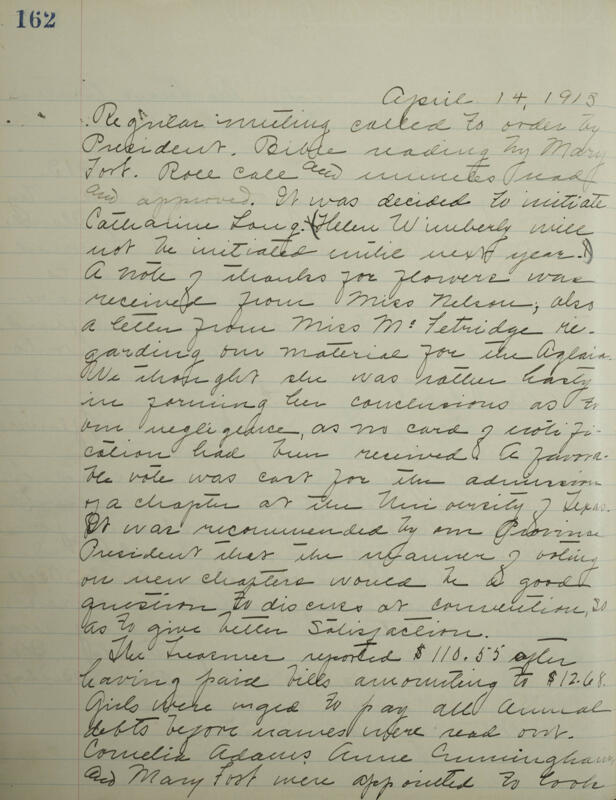 162
April 14, 1913
Regular meeting called to order by
President. Bible reading by Mary
Fort. Roll call and minutes read
and approved. It was decided to initiate
Catharine Long. (Helen Wimberly will
not be initiated until next year.)
A note of thanks for flowers was
received from Miss Nelson, also
a letter from Miss McFetridge re-
garding our material for the Aglaia.
We thought she was rather hasty
in forming her conclusions as to
our negligence, as no card of notifi-
cation had been received. A favora-
ble vote was cast for the admission
of a chapter at the University of Texas.
It was recommended by our Province
President that the manner of voting
on new chapters would be a good
question to discuss at convention, so
as to give better satisfaction.
The Treasurer reported $110.55 after
having paid bills amounting to $12.68.
Girls were urged to pay all annual
debts before names were read out.
Cornelia Adams Anne Cunningham
and Mary Fort were appointed to look